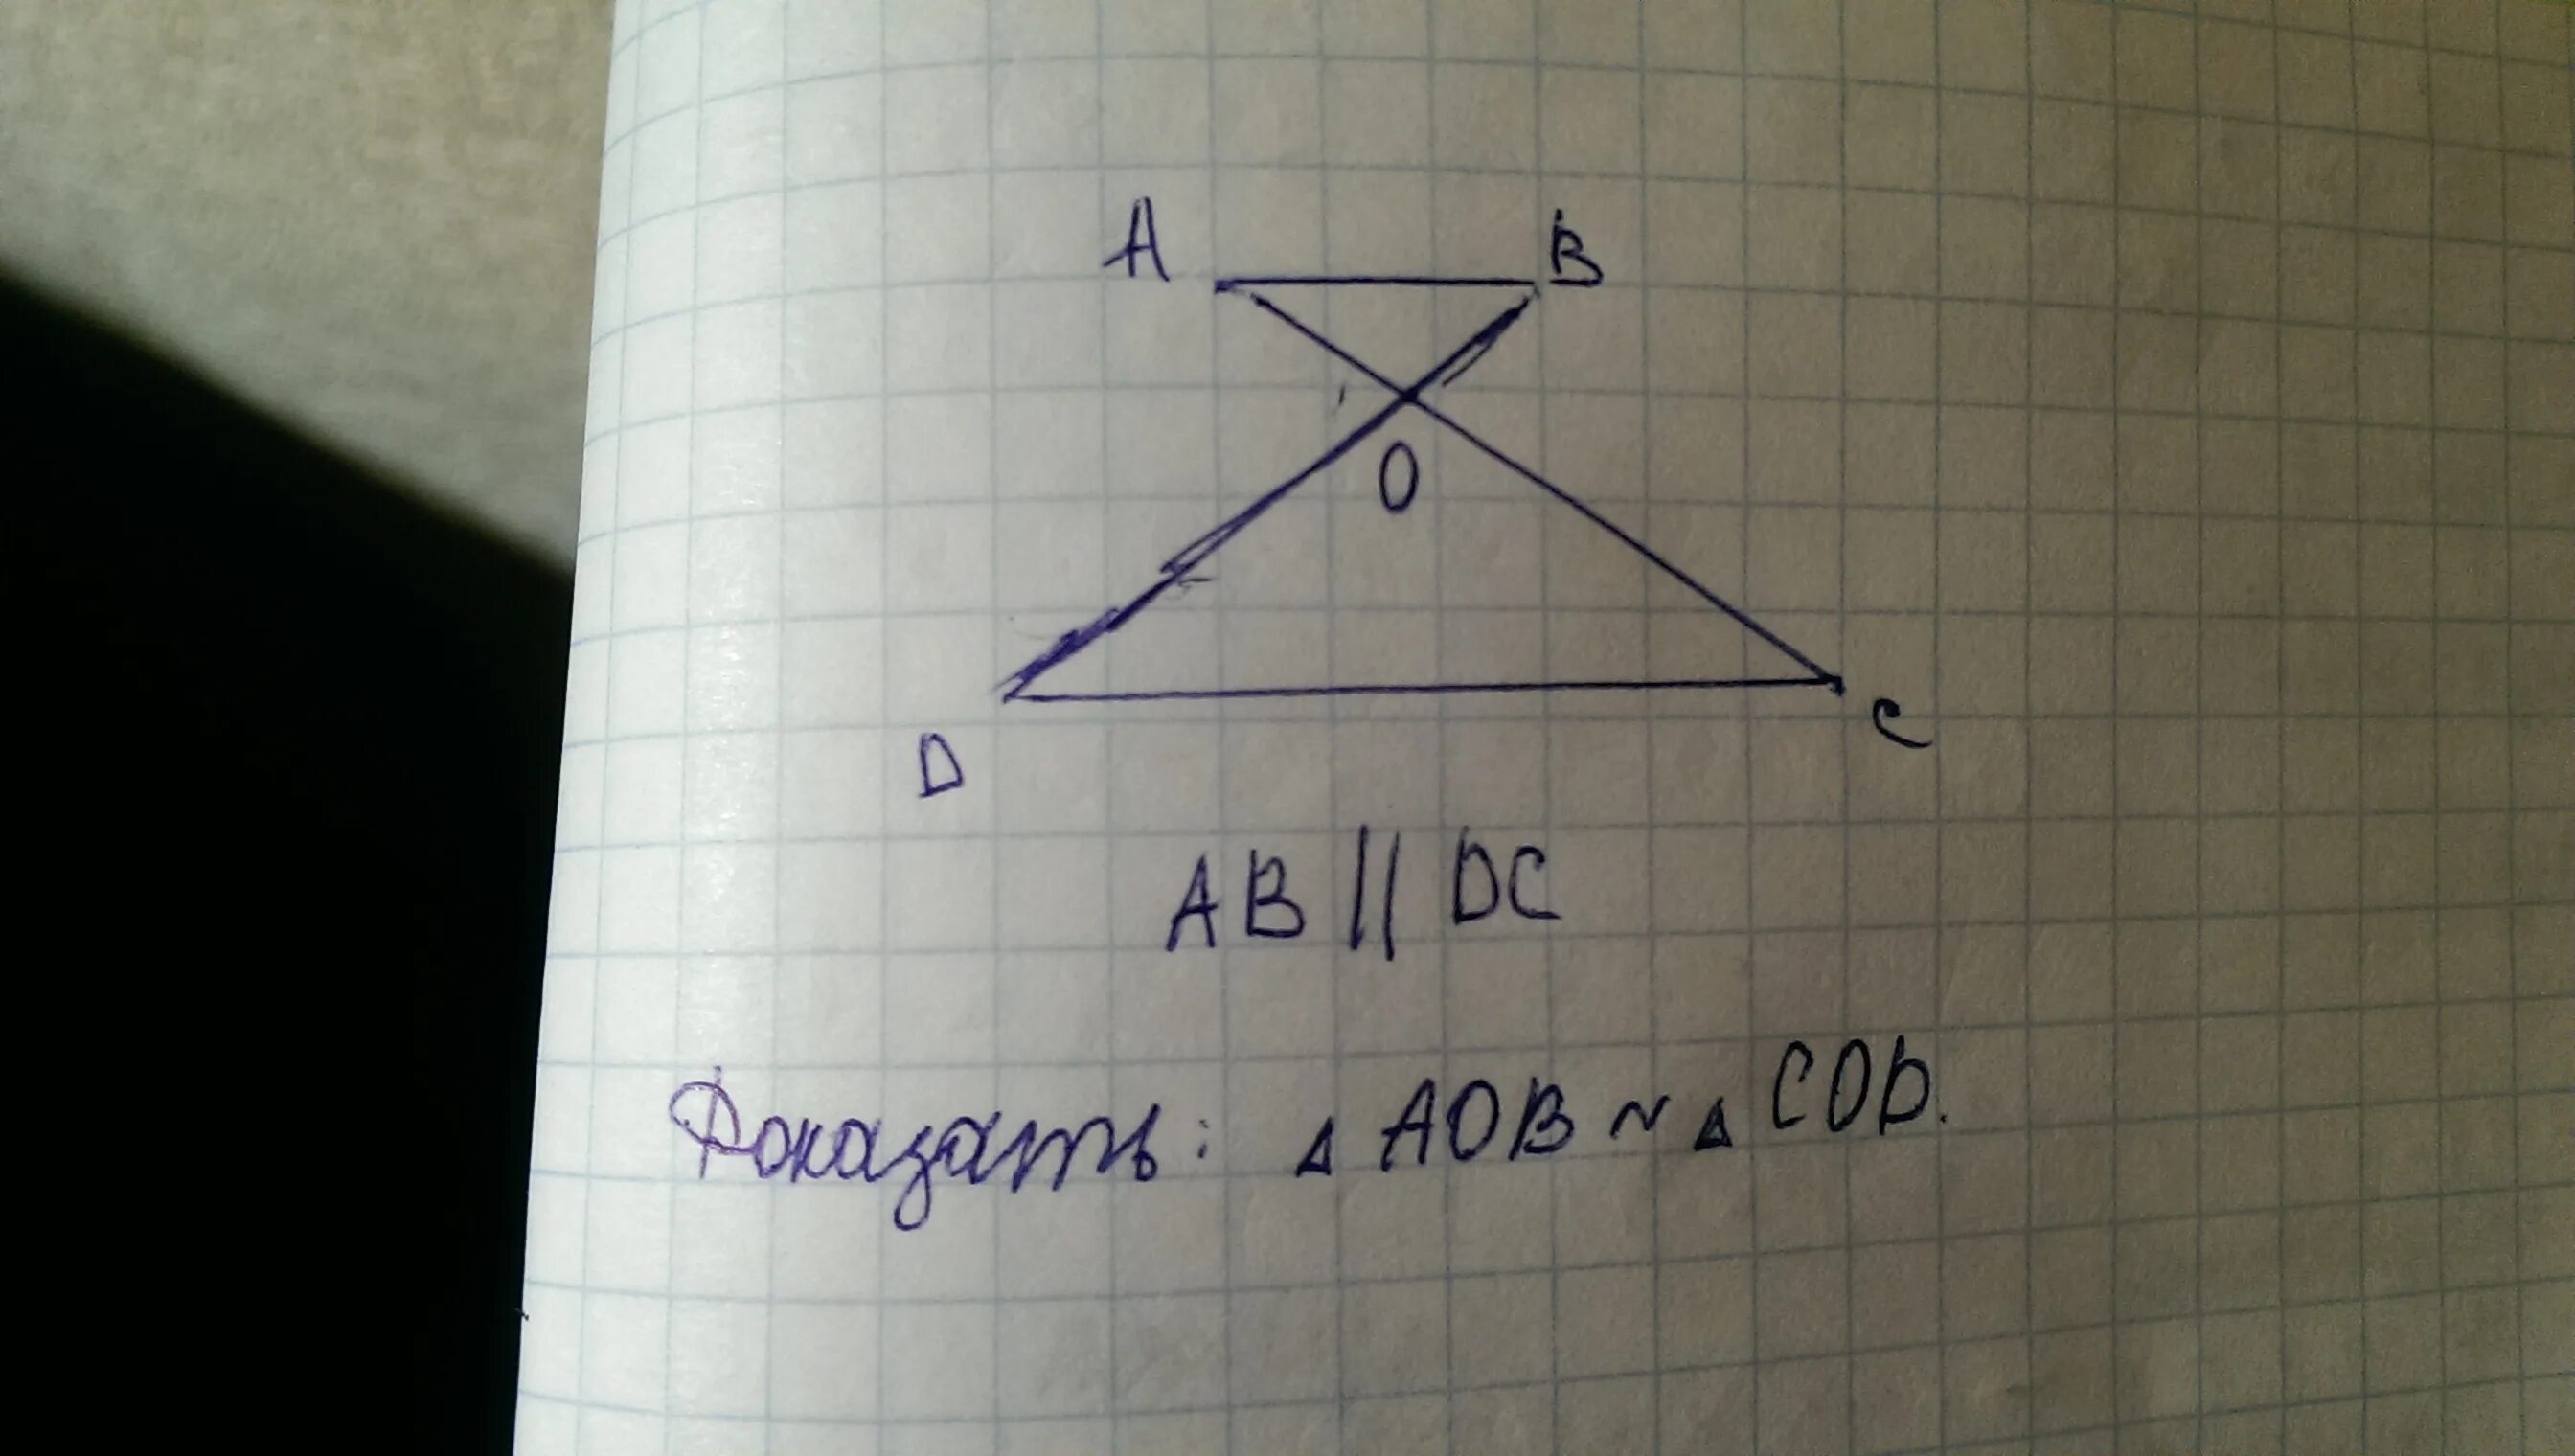 A B
O
D C
AB || DC
Доказать: △ AOB ~ △ COD.